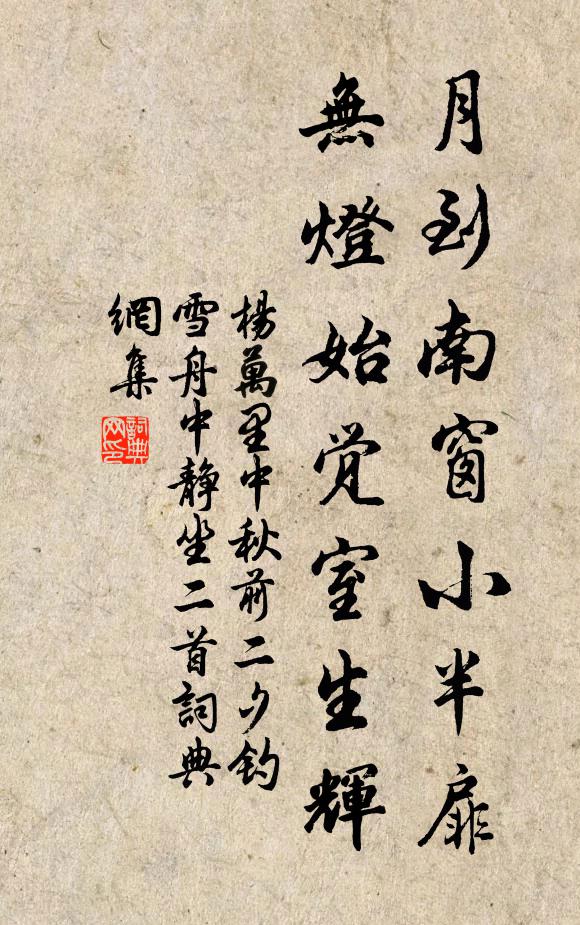 月到南窗小半扉
無燈始觉室生輝
楊萬里中秋前二夕釣
雪舟中靜坐二首詞典
網集
詞典
网印